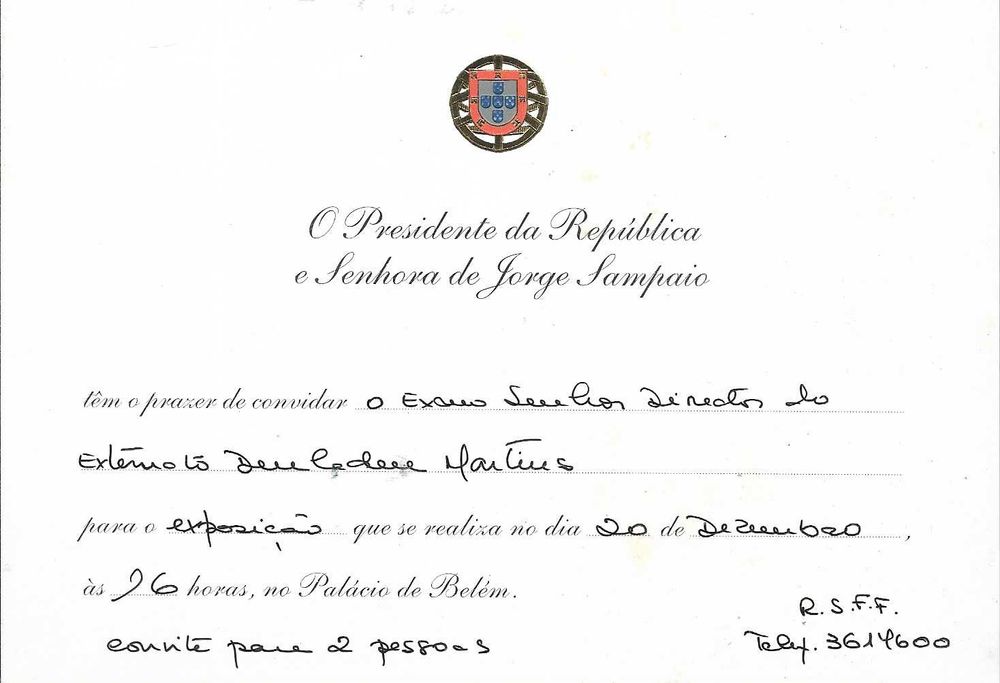 O Presidente da República
e Senhora de Jorge Sampaio
têm o prazer de convidar o Exmo Senhor Director do
Externato Martins
para o exposição que se realiza no dia 20 de Dezembro,
às 16 horas, no Palácio de Belém.
R.S.F.F.
convite para 2 pessoas
Telef. 3614600